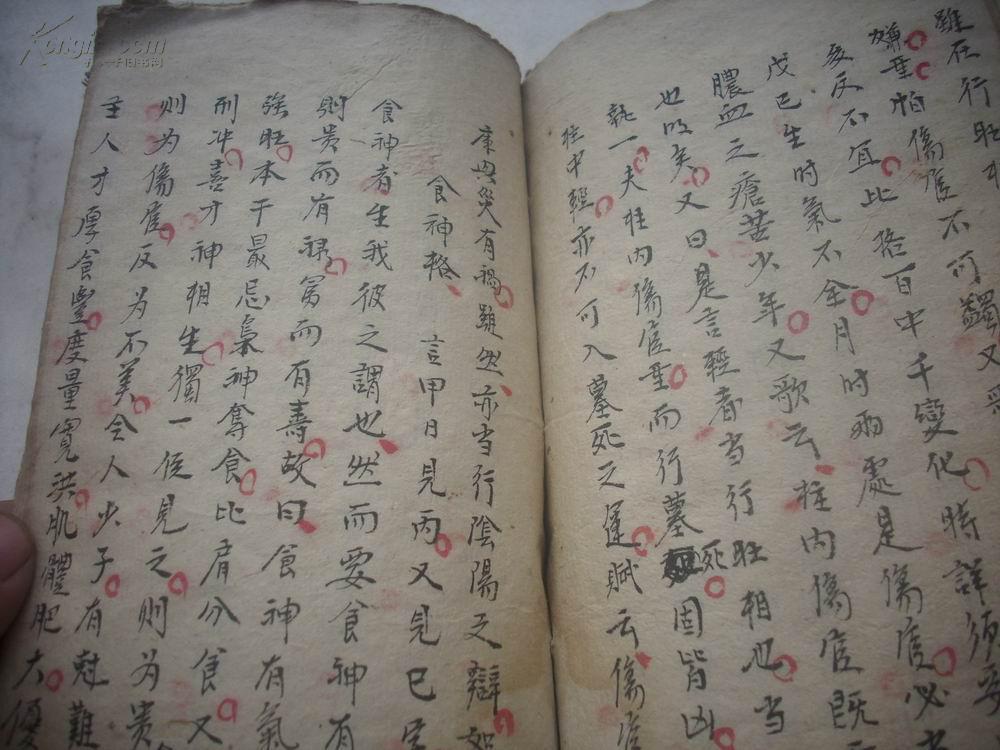 雖在行旺
嫌重怕傷官不可蠲又
多反不宜比格百中千變化時詳須要
戊己生時氣不全月时兩處是傷官必
膿血之瘡苦少年又歌云柱内傷官既
也收矣又曰是言輕者当行旺相也当
執一夫柱内傷官重而行墓死固皆凶
柱中輕亦不可入墓死之運賦云傷官
庶毋災有禍雖然亦当行陰陽之辯
食神格 言甲日見丙又見巳
食神者生我彼之謂也然而要食神有
則贵而有祿富而有壽故曰食神有氣
強旺本干最忌梟神奪食比肩分食又
刑冲喜才神相生獨一位見之則为贵
则为傷官反为不美令人少子有尅難
主人才厚食豐度量寬洪肌體肥大優
Kongfz.com